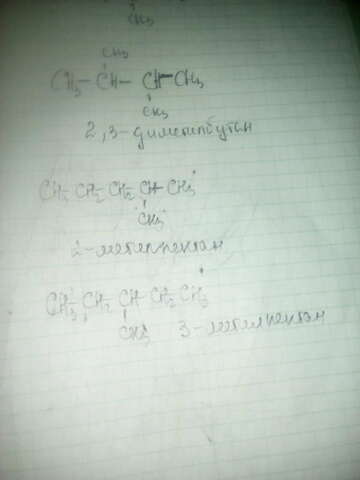 CH₃
CH₃
CH₃-CH-CH-CH₃
CH₃
2,3-диметилбутан
CH₃-CH₂-CH₂-CH-CH₃
CH₃
2-метилпентан
CH₃-CH₂-CH-CH₂-CH₃
CH₃ 3-метилпентан